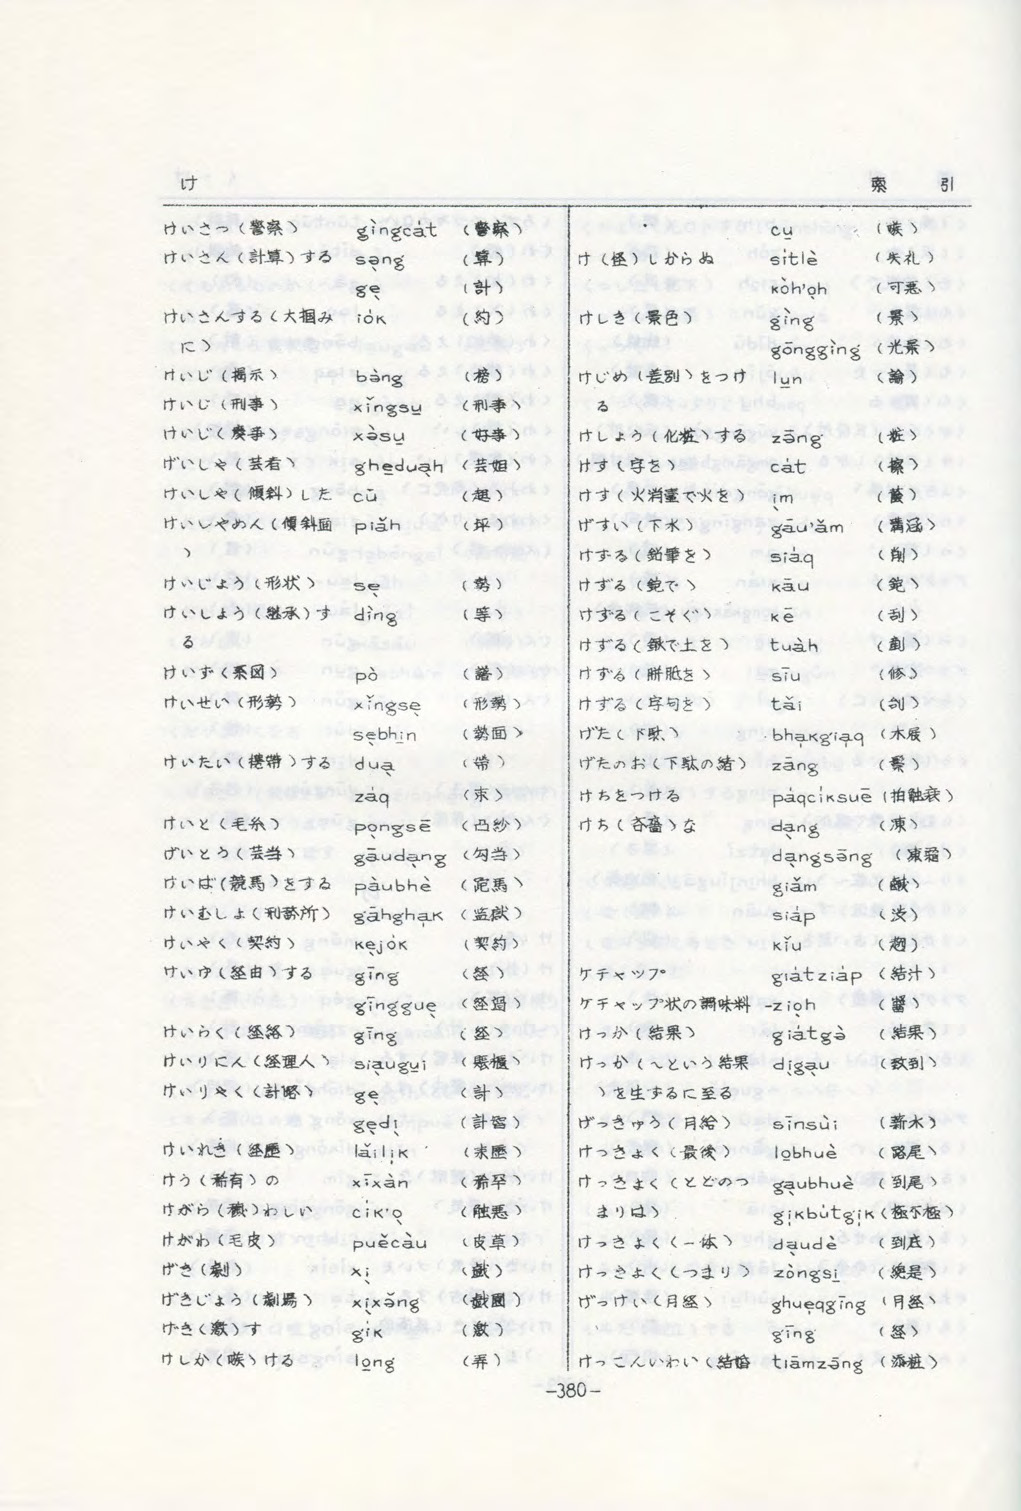 け 索 引
けいさつ（警察） gìngcat （警察）
けいさん（計算）する sǝng （算）
gẹ （計）
けいさんする（大掴み iók （約）
に）
けいじ（掲示） bàng （榜）
けいじ（刑事） xǐngsụ （刑事）
けいじ（慶事） xə̀sụ （好事）
げいしゃ（芸者） ghẹduạh （芸妲）
けいしゃ（傾斜）した cū （趄）
けいしゃめん（傾斜面 piǎh （坪）
）
けいじょう（形状） sẹ （勢）
けいしょう（継承）す dìng （等）
る
けいず（系図） pò （譜）
けいせい（形勢） xǐngsẹ （形勢）
sẹbhịn （勢面）
けいたい（携帯）する duạ （帯）
záq （束）
けいと（毛糸） pọngsē （凸紗）
げいとう（芸当） gāudạng （勾当）
けいば（競馬）をする pàubhè （跑馬）
けいむしょ（刑務所） gāhghạk （監獄）
けいやく（契約） kẹjók （契約）
けいゆ（経由）する gīng （経）
gīngguẹ （経過）
けいらく（経絡） gīng （経）
けいりにん（経理人） siạugụi （賬櫃）
けいりゃく（計略） gẹ （計）
gẹdị （計智）
けいれき（経歴） lǎilịk （来歴）
けう（稀有）の xīxàn （稀罕）
けがら（穢）わしい cíkọ （触悪）
けがわ（毛皮） puěcàu （皮草）
げき（劇） xị （戯）
げきじょう（劇場） xịxǎng （戯園）
げき（激）す gík （激）
けしか（嗾）ける lọng （弄）
cụ （嗾）
け（怪）しからぬ sítlè （失礼）
kòh'ọh （可悪）
けしき（景色） gìng （景）
gōnggìng （光景）
けじめ（差別）をつけ lụn （論）
る
けしょう（化粧）する zāng （粧）
けす（字を） cát （擦）
けす（火消壷で火を） ịm
げすい（下水） gāu'ǎm （溝涵）
けずる（鉛筆を） siáq （削）
けずる（鉋で） kāu （鉋）
けずる（こそぐ） kē （刮）
けずる（鍬で土を） tuàh （剷）
けずる（胼胝を） sīu （修）
けずる（字句を） tǎi
げた（下駄） bhạkgiạq （木屐）
げたのお（下駄の緒） zāng
けちをつける páqcíksuē （拍触衰）
けち（吝嗇）な dạng （凍）
dạngsāng （凍霜）
giǎm （鹹）
siáp （渋）
kǐu
ケチャップ giátziáp （結汁）
ケチャップ状の調味料 -ziọh （醤）
けっか（結果） giátgə̀ （結果）
けっか（～という結果 dịgạu （致到）
）を生ずるに至る
げっきゅう（月給） sīnsùi （薪水）
けっきょく（最後） lọbhuè （路尾）
けっきょく（とどのつ gạubhuè （到尾）
まりは） gịkbútgịk （極不極）
けっきょく（一体） dạudè （到底）
けっきょく（つまり） zòngsị （総是）
げっけい（月経） ghuẹqgīng （月経）
gīng （経）
けっこんいわい（結婚 tiāmzāng （添粧）
-380-